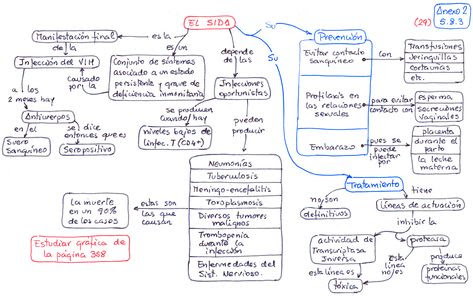 EL SIDA
Su
Anexo 2
(29) 5.8.3
Manifestación final
de la
es la
es un
Infección del VIH
causado
por la
Conjunto de síntomas
asociado a un estado
persistente y grave de
deficiencia inmunitaria
depende
de las
Infecciones
oportunistas
a los
2 meses hay
Anticuerpos
en el
Suero
sanguíneo
se dice
entonces que es
Seropositivo
se producen
cuando hay
niveles bajos de
linfoc. T (CD4+)
pueden
producir
Neumonías
Tuberculosis
Meningo-encefalitis
Toxoplasmosis
Diversos tumores
malignos
Trombopenia
durante la
infección
Enfermedades del
Sist. Nervioso.
estas son
las que
causan
La muerte
en un 90%
de los casos
Estudiar gráfica de
la página 368
Su
Prevención
Evitar contacto
sanguíneo
con
Transfusiones
Jeringuillas
Cortauñas
etc.
Profilaxis en
las relaciones
sexuales
para evitar
contacto con
esperma
secreciones
vaginales
Embarazo
pues se
puede
infectar
por
placenta
durante
el parto
la leche
materna
Tratamiento
no/son
definitivos
tiene
Líneas de actuación
inhibir la
actividad de
Transcriptasa
Inversa
proteasa
esta línea es
esta
línea
no/es
tóxica
produce
proteínas
funcionales